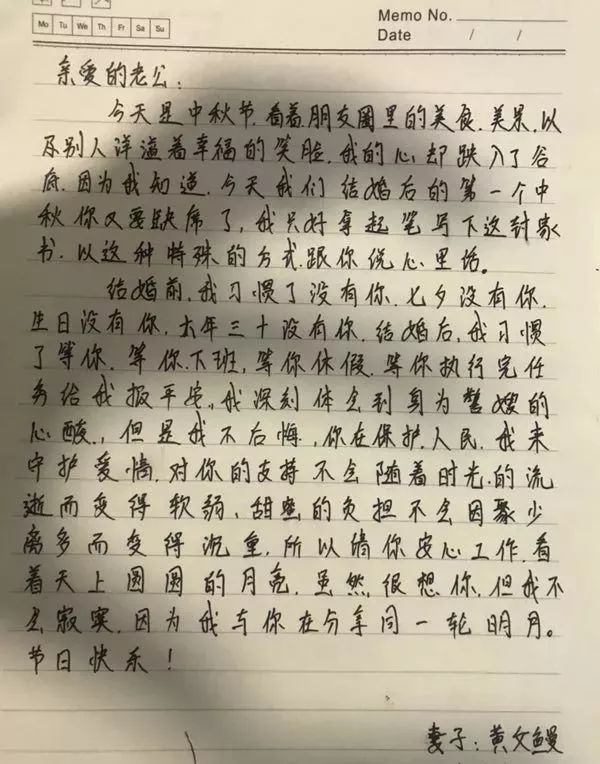 Memo No.
Mo Tu We Th Fr Sa Su
Date / /
亲爱的老公:
今天是中秋节,看着朋友圈里的美食、美景,以
及别人洋溢着幸福的笑脸,我的心却跌入了谷
底,因为我知道,今天我们结婚后的第一个中
秋你又要缺席了,我只好拿起笔写下这封家
书,以这种特殊的方式跟你说心里话。
结婚前,我习惯了没有你,七夕没有你,
生日没有你,大年三十没有你,结婚后,我习惯
了等你,等你下班,等你休假,等你执行完任
务给我报平安,我深刻体会到身为警嫂的
心酸,但是我不后悔,你在保护人民,我来
守护爱情,对你的支持不会随着时光的流
逝而变得软弱,甜蜜的负担不会因聚少
离多而变得沉重,所以请你安心工作,看
着天上圆圆的月亮,虽然很想你,但我不
会寂寞,因为我与你在分享同一轮明月。
节日快乐!
妻子:黄文鳗